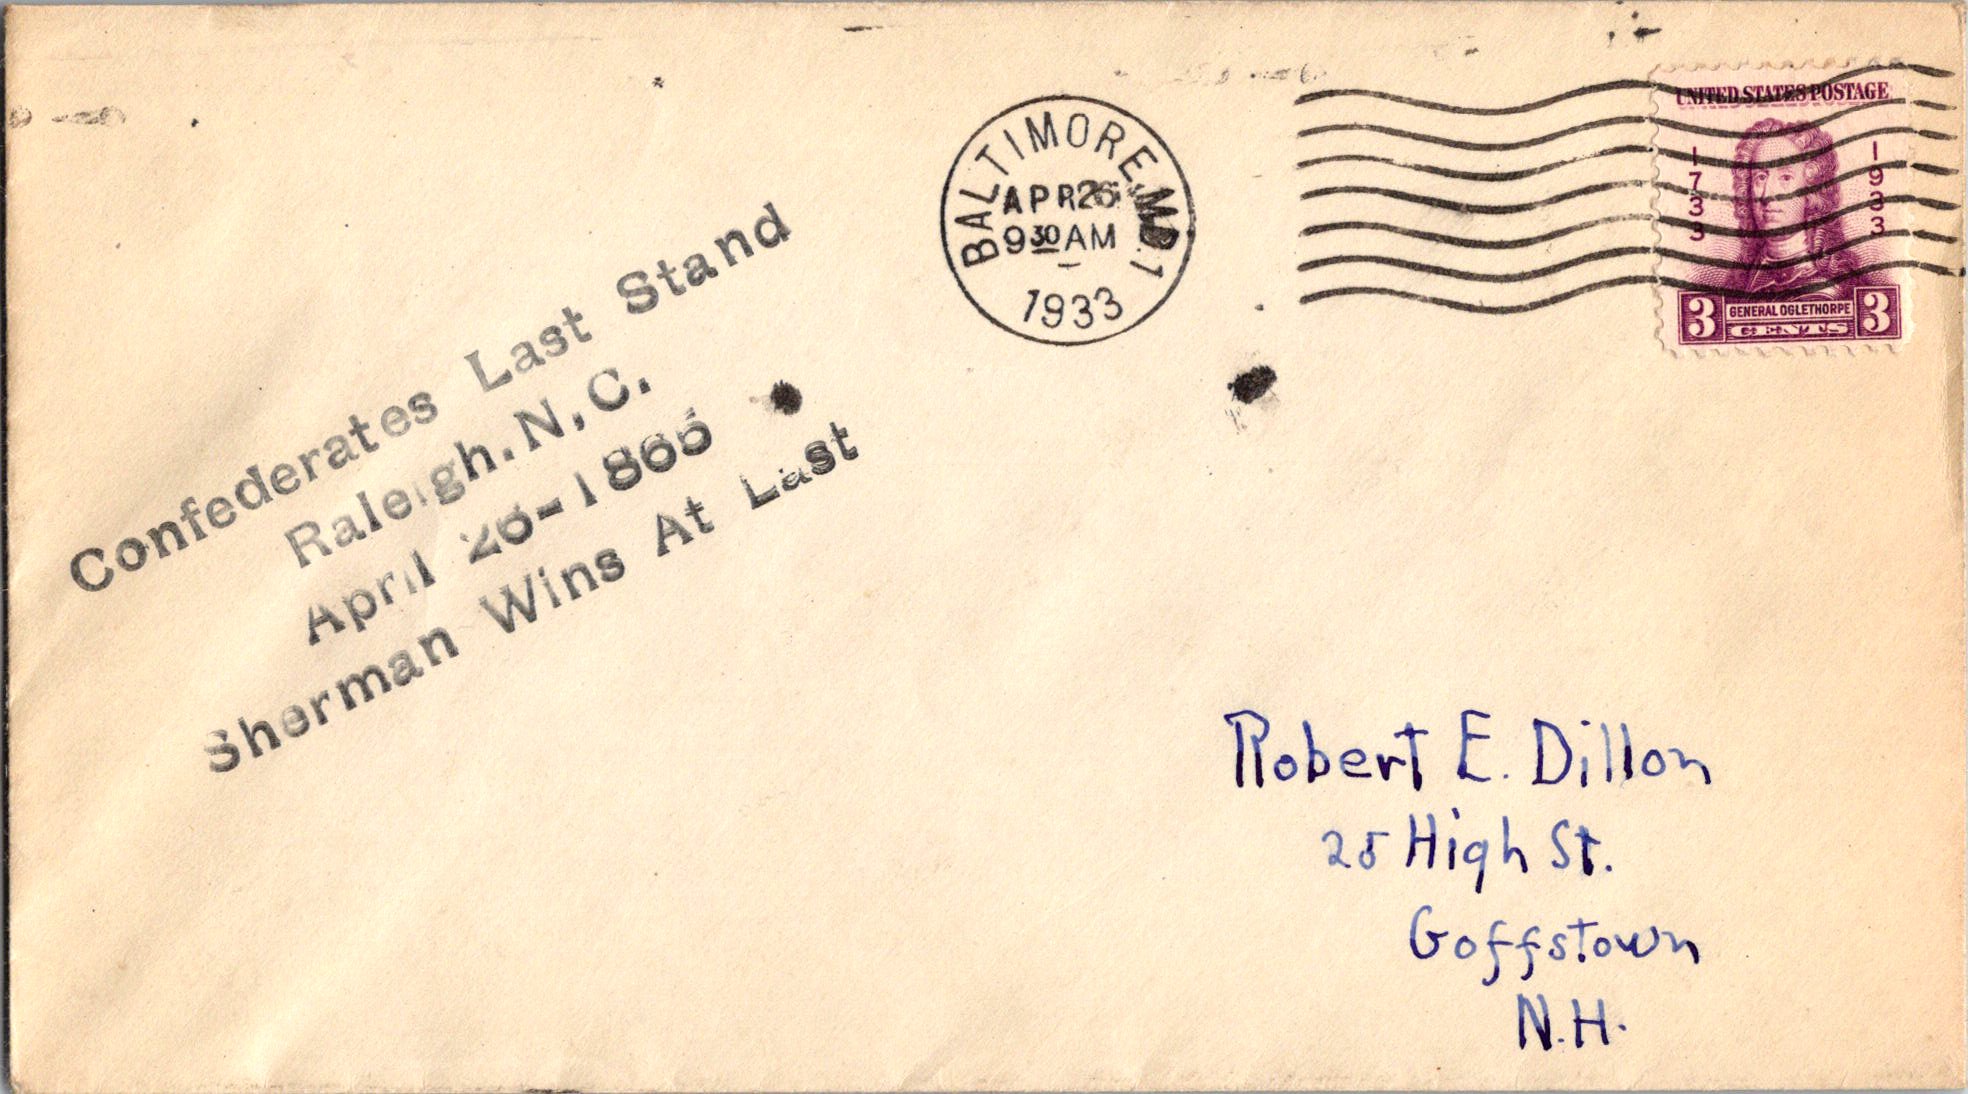 Confederates Last Stand
Raleigh. N, C.
April 26-1865
Sherman Wins At Last
BALTIMORE, MD. 1
APR 26
9 30 AM
1933
UNITED STATES POSTAGE
1733
1933
3 GENERAL OGLETHORPE 3
CENTS
Robert E. Dillon
25 High St.
Goffstown
N.H.